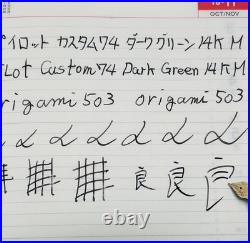 OCT/NOV
パイロット カスタム74 ダークグリーン 14K M
Lot Custom 74 Dark Green 14K M
origami 503 origami 503
良 良 良